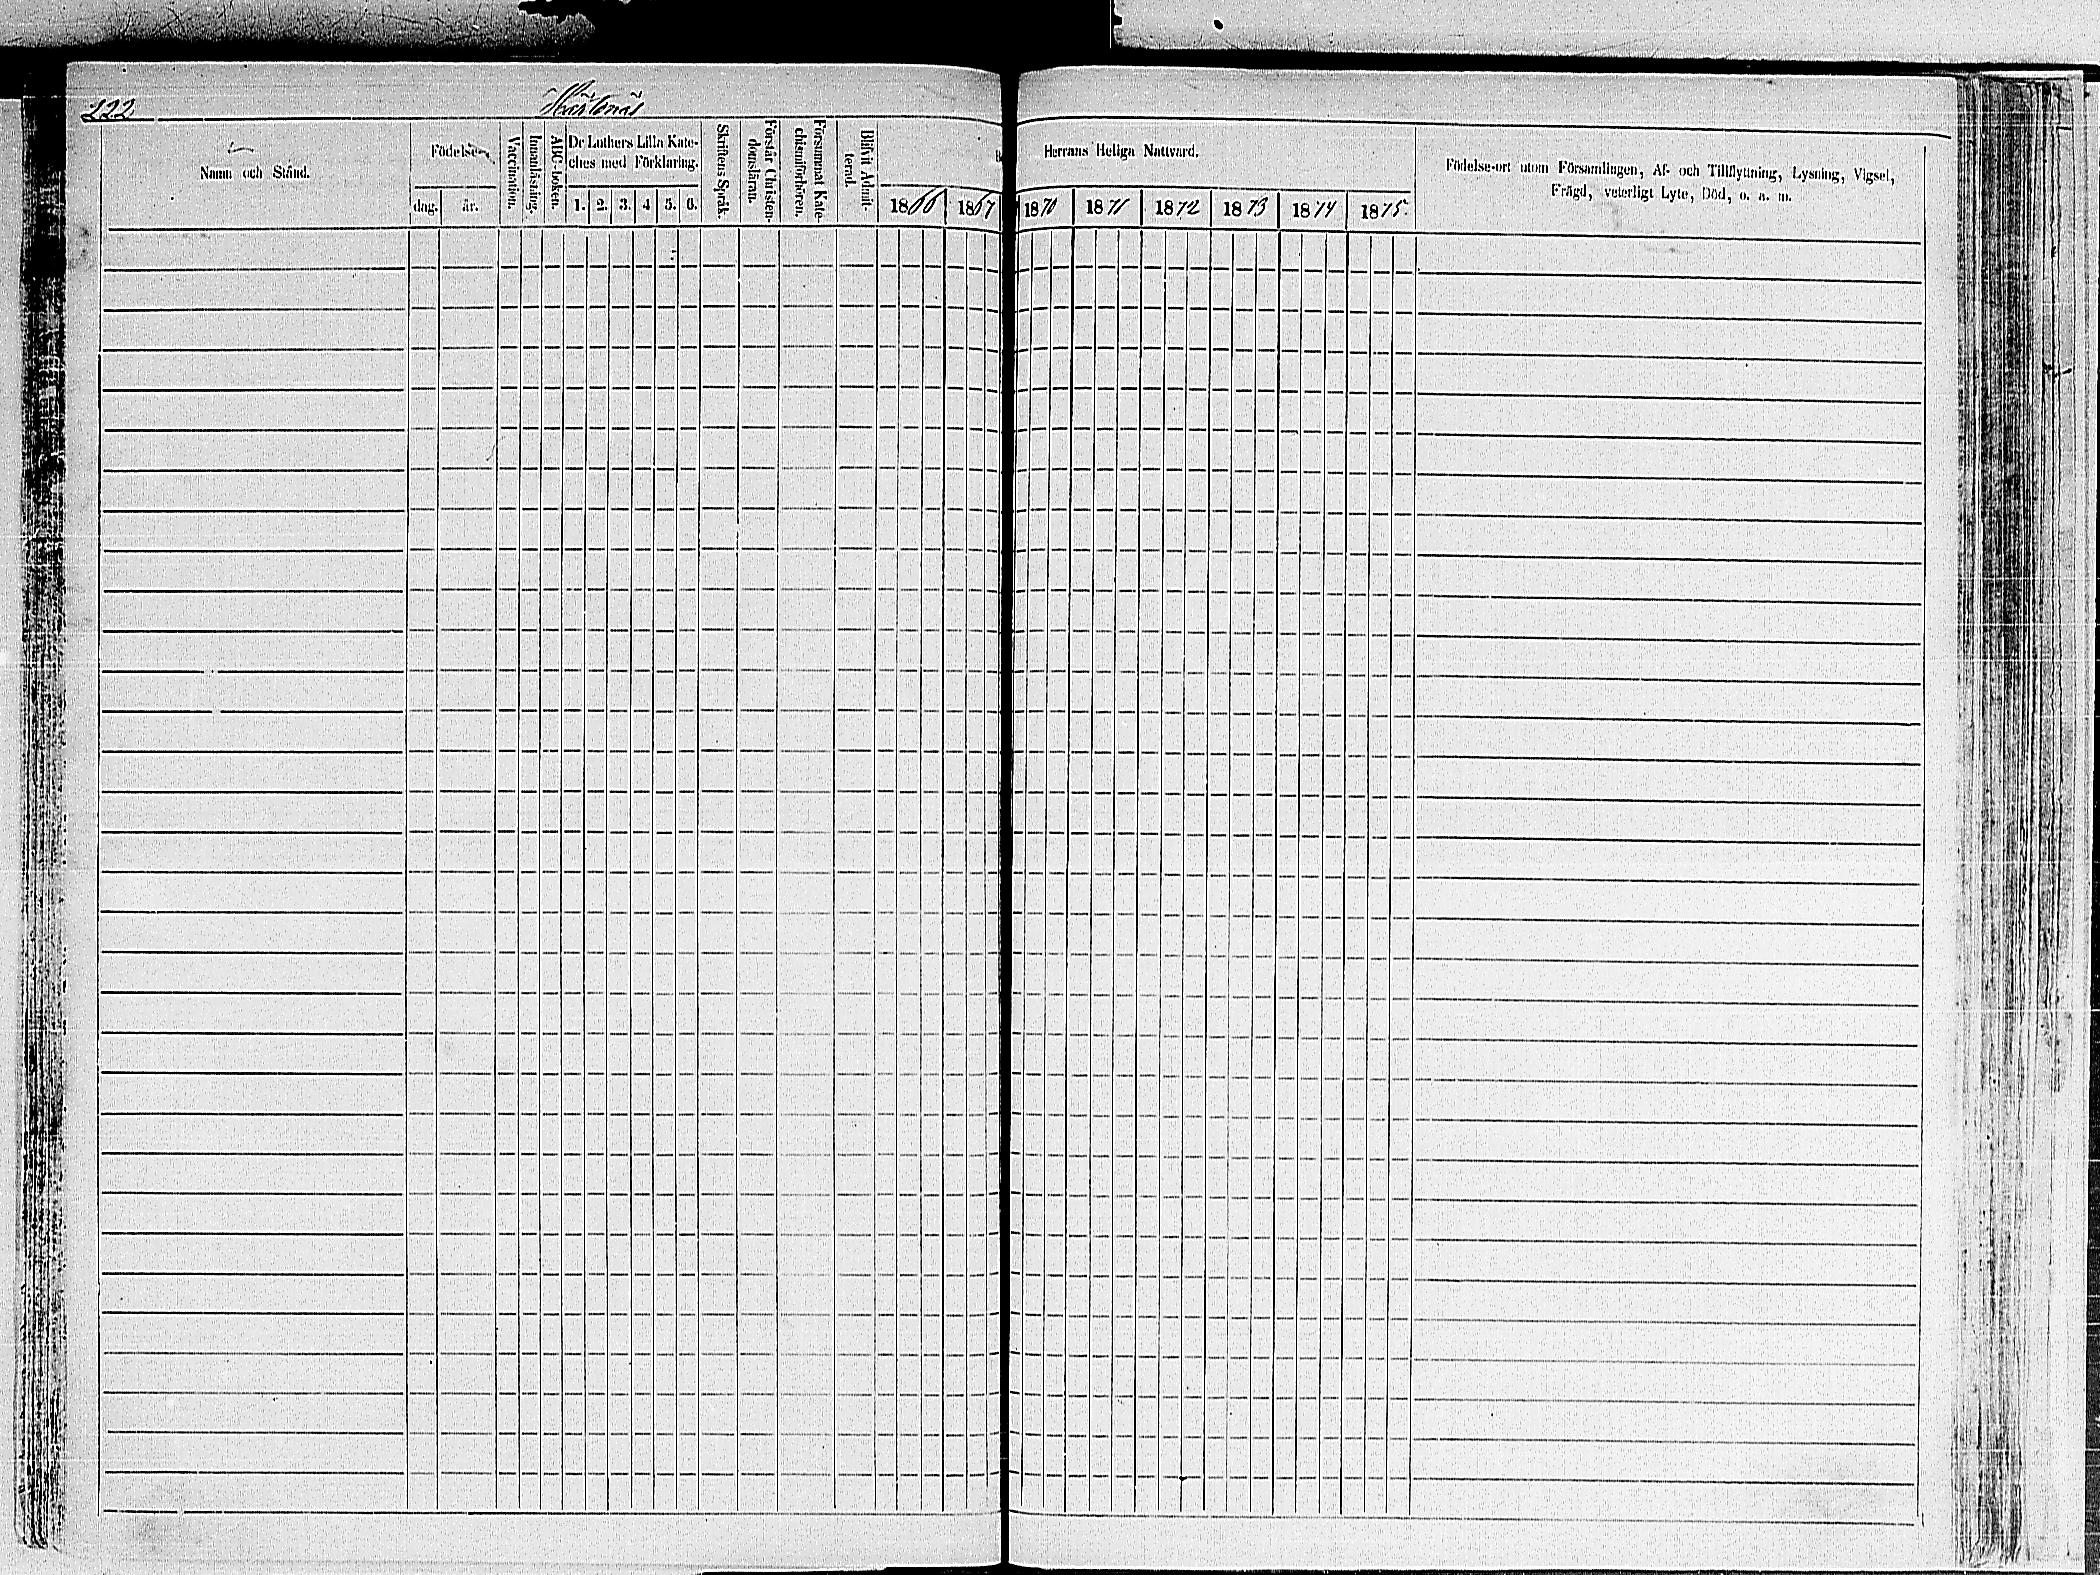 222
Namn och Stånd.
Födelse-
dag.
år.
Vaccination.
Innanläsning.
ABC-boken.
Dr Luthers Lilla Kate-
ches med Förklaring.
1. 2. 3. 4 5. 6.
Skriftens Språk.
Förstår Christen-
domsläran.
Försummat Kate-
chismiförhören.
Blifvit Admit-
terad.
1866 1867
Herrans Heliga Nattvard.
1870 1871 1872 1873 1874 1875.
Födelse-ort utom Församlingen, Af- och Tillflyttning, Lysning, Vigsel,
Frägd, veterligt Lyte, Död, o. s. m.